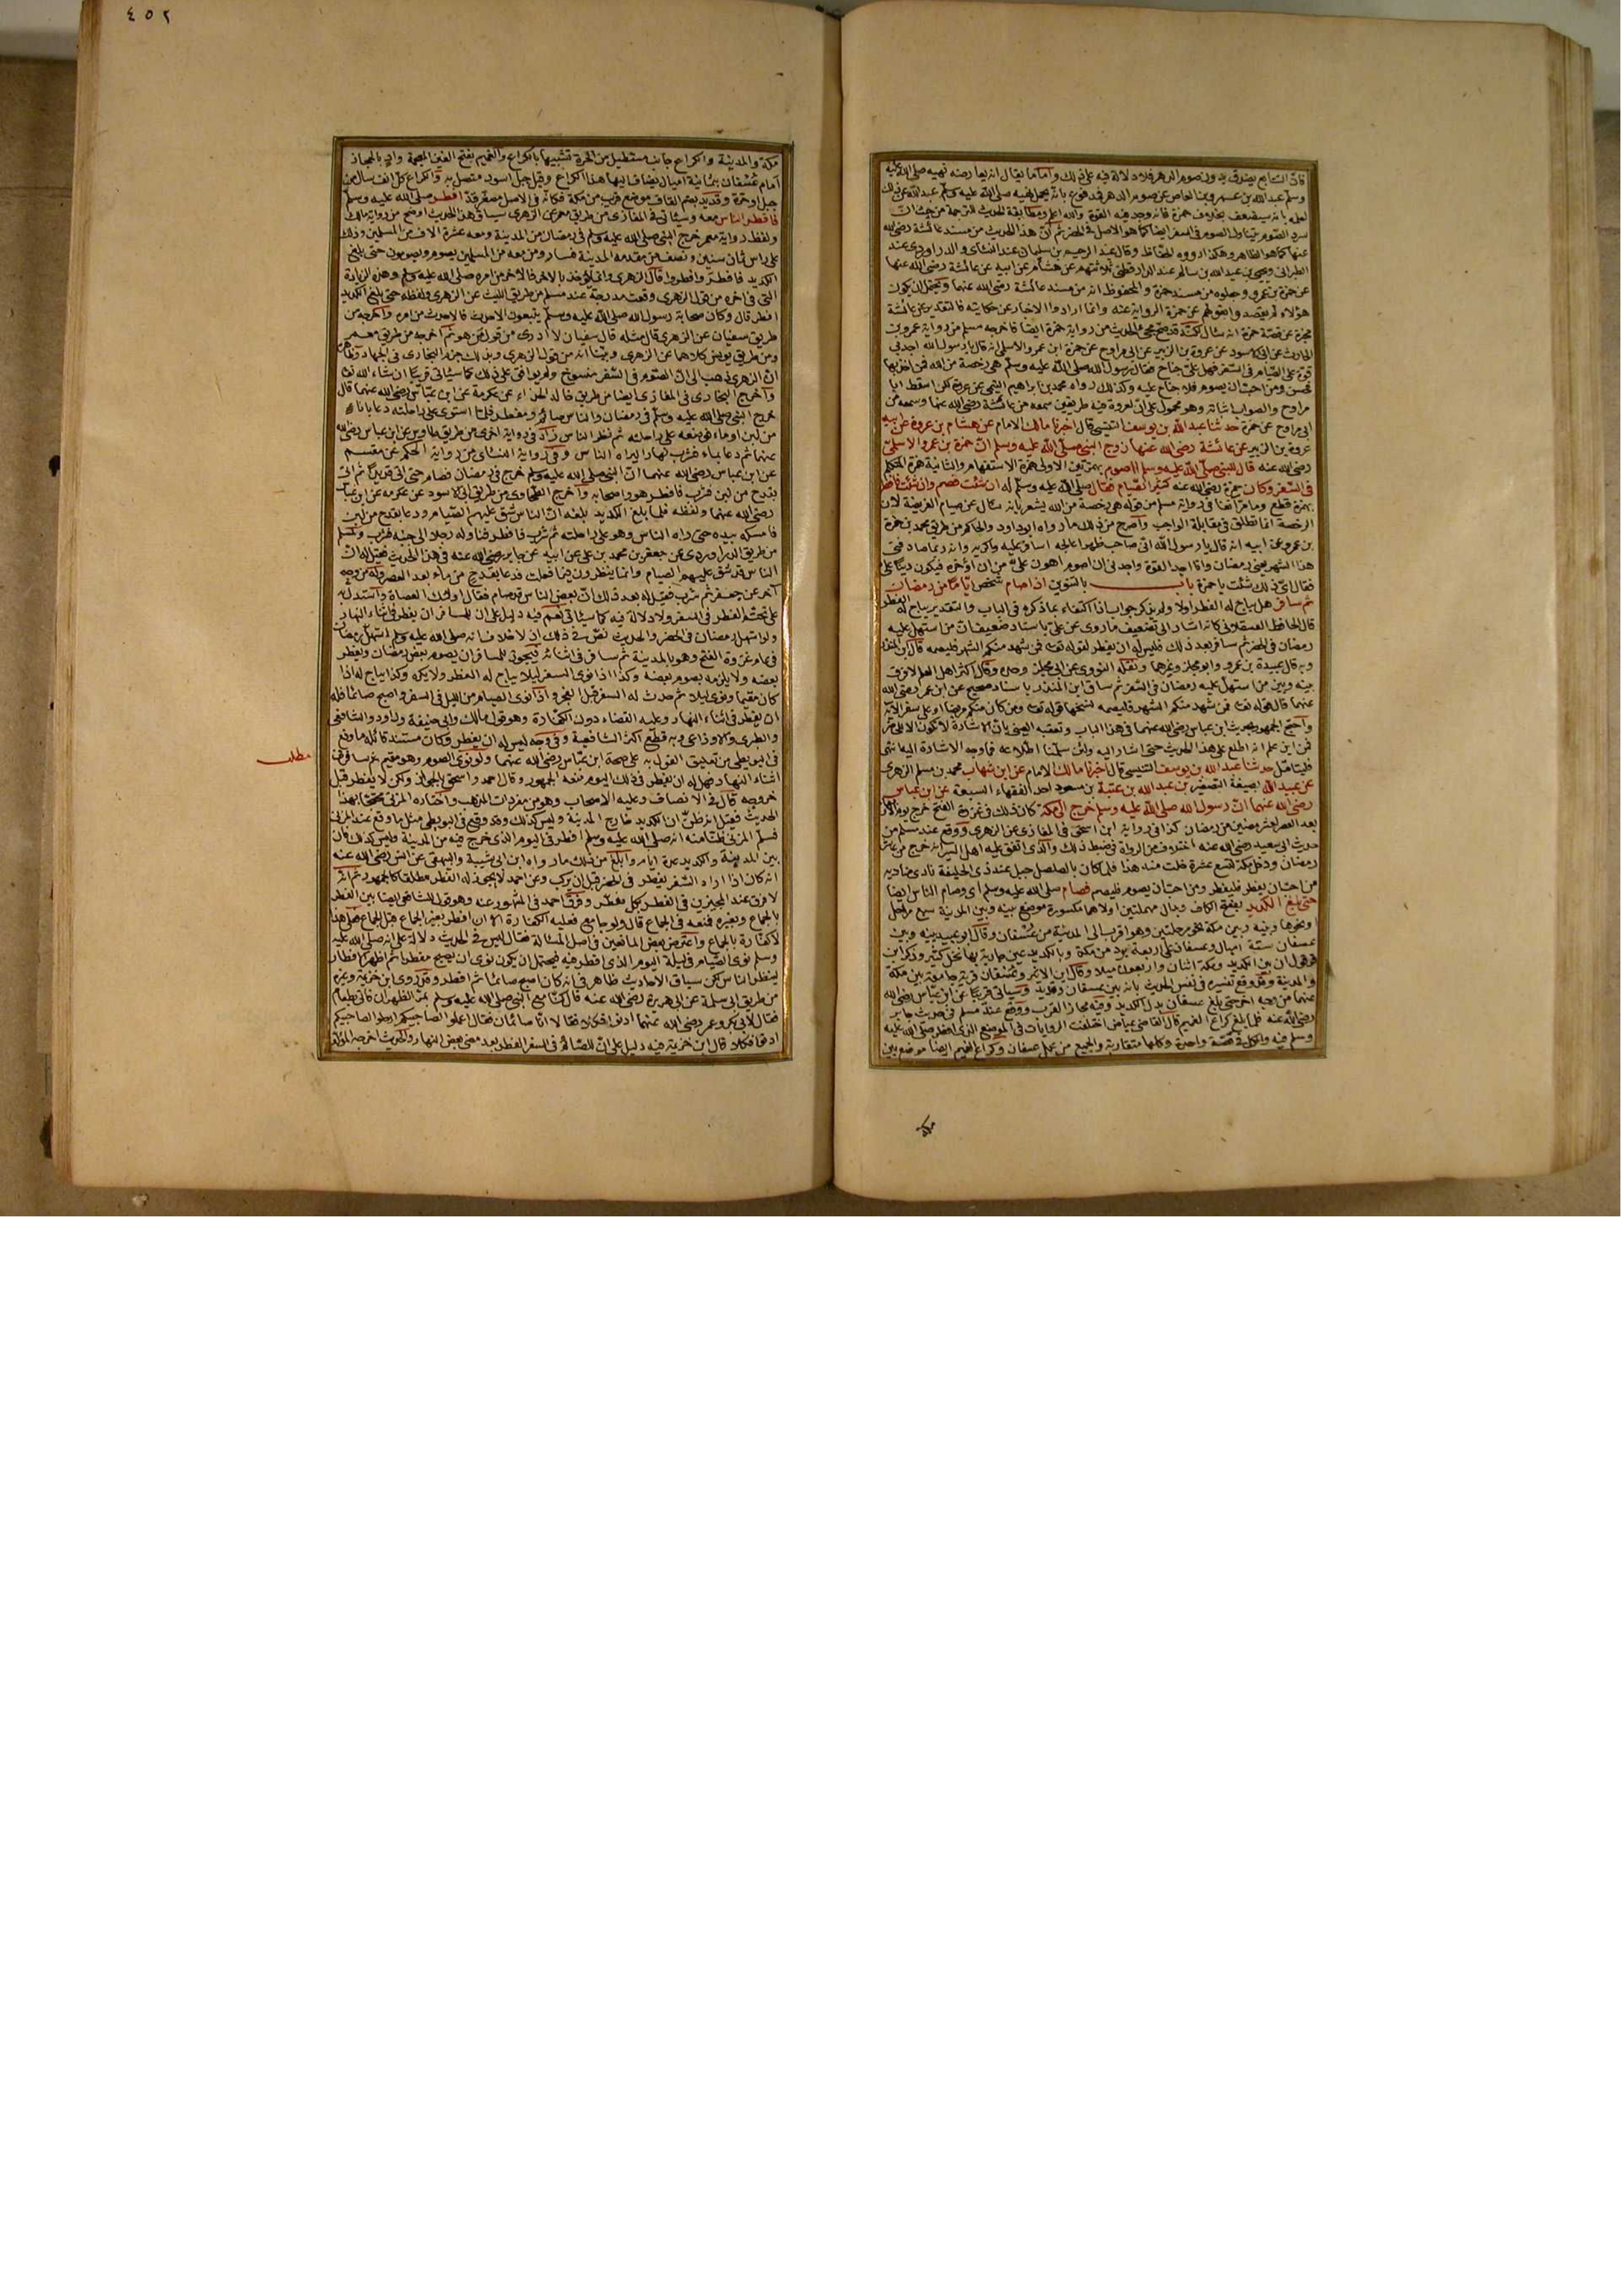 فان التتابع يصدق بدون صوم الدهر فلا دلالة فيه على ذلك واما ما يقال انه يعارضه نهيه صلى الله عليه
وسلم عبد الله بن عمرو بن العاص عن صوم الدهر فمدفوع بانه يحمل نهيه صلى الله عليه وسلم عبد الله عن ذلك
لعلمه بانه سيضعف بخلاف حمزة فانه وجد فيه القوة والله اعلم ومطابقة الحديث للترجمة من حيث ان
سرد الصوم يتناول الصوم في السفر ايضا كما هو الاصل في الحضر ثم ان هذا الحديث من مسند عائشة رضى الله
عنها كما هو الظاهر وهكذا رووه الحفاظ وقال عبد الرحيم بن سليمان عند النسائى والدراوردى عند
الطبرانى ويحيى بن عبد الله بن سالم عند الدارقطنى ثلاثتهم عن هشام عن ابيه عن عائشة رضى الله عنها
عن حمزة بن عمرو وجعلوه من مسند حمزة والمحفوظ انه من مسند عائشة رضى الله عنها ويحتمل ان يكون
هؤلاء لم يقصدوا بقولهم عن حمزة الرواية عنه وانما ارادوا الاخبار عن حكايته فالتقدير عن عائشة
مخبرة عن قصة حمزة انه سال لكنه قد صح مجئ الحديث من رواية حمزة ايضا فاخرجه مسلم من رواية عمرو بن
الحارث عن ابى الاسود عن عروة بن الزبير عن ابى مراوح عن حمزة ابن عمرو الاسلمى انه قال يا رسول الله اجد بى
قوة على الصيام فى السفر فهل على جناح فقال رسول الله صلى الله عليه وسلم هى رخصة من الله فمن اخذ بها
فحسن ومن احب ان يصوم فلا جناح عليه وكذلك رواه محمد بن ابراهيم التيمى عن عروة لكن اسقط ابا
مراوح والصواب اثباته وهو محمول على ان لعروة فيه طريقين سمعه من عائشة رضى الله عنها وسمعه من
ابى مراوح عن حمزة حدثنا عبد الله بن يوسف التنيسى قال اخبرنا مالك الامام عن هشام بن عروة عن ابيه
عروة بن الزبير عن عائشة رضى الله عنها زوج النبى صلى الله عليه وسلم ان حمزة بن عمرو الاسلمى
رضى الله عنه قال للنبى صلى الله عليه وسلم ااصوم بهمزتين الاولى همزة الاستفهام والثانية همزة المتكلم
فى السفر وكان حمزة رضى الله عنه كثير الصيام فقال صلى الله عليه وسلم له ان شئت فصم وان شئت فافطر
بهمزة قطع وما مر انفا فى رواية مسلم من قوله هى رخصة من الله يشعر بانه سال عن صيام الفريضة لان
الرخصة انما تطلق فى مقابلة الواجب واصرح من ذلك ما رواه ابو داود والحاكم من طريق محمد بن حمزة
بن عمرو عن ابيه انه قال يا رسول الله انى صاحب ظهر اعالجه اسافر عليه واكريه وانه ربما صادفنى
هذا الشهر يعنى رمضان وانا اجد القوة واجدنى ان اصوم اهون على من ان اؤخره فيكون دينا على
فقال اى ذلك شئت يا حمزة باب بالتنوين اذا صام شخص اياما من رمضان
ثم سافر هل يباح له الفطر اولا ولم يذكر جواب اذا اكتفاء بما ذكره فى الباب والتقدير يباح له الفطر
قال الحافظ العسقلانى كانه اشار الى تضعيف ما روى عن على باسناد ضعيف ان من استهل عليه
رمضان فى الحضر ثم سافر بعد ذلك فليس له ان يفطر لقوله تعالى فمن شهد منكم الشهر فليصمه قال ابن المنذر
وبه قال عبيدة بن عمرو وابو مجلز وغيرهما ونقله النووى عن ابى مجلز وحده وقال اكثر اهل العلم لا فرق
بينه وبين من استهل عليه رمضان فى السفر ثم ساق ابن المنذر باسناد صحيح عن ابن عمر رضى الله
عنهما قال قوله تعالى فمن شهد منكم الشهر فليصمه نسخها قوله تعالى ومن كان منكم مريضا او على سفر الاية
واحتج الجمهور بحديث ابن عباس رضى الله عنهما فى هذا الباب وتعقبه العينى بان الاشارة لا تكون الا
فمن اين علم انه اطلع على هذا الحديث حتى اشار اليه ولئن سلمنا اطلاعه فما وجه الاشارة اليه انتهى
فليتامل حدثنا عبد الله بن يوسف التنيسى قال اخبرنا مالك الامام عن ابن شهاب محمد بن مسلم الزهرى
عن عبيد الله بصيغة التصغير بن عبد الله بن عتبة بن مسعود احد الفقهاء السبعة عن ابن عباس
رضى الله عنهما ان رسول الله صلى الله عليه وسلم خرج الى مكة كان ذلك فى غزوة الفتح خرج يوم الاربعاء
بعد العصر لعشر مضين من رمضان كذا فى رواية ابن اسحق فى المغازى عن الزهرى ووقع عند مسلم من
حديث ابى سعيد رضى الله عنه اختلاف من الرواة فى ضبط ذلك والذى اتفق عليه اهل السير انه خرج من عاشر
رمضان ودخل مكة لتسع عشرة خلت منه هذا فلما كان بالصلصل جبل عند ذى الحليفة نادى مناديه
من احب ان يفطر فليفطر ومن احب ان يصوم فليصم فصام صلى الله عليه وسلم اى وصام الناس ايضا
حتى بلغ الكديد بفتح الكاف وبدال مهملتين اولاهما مكسورة موضع بينه وبين المدينة سبع مراحل
او نحوها وبينه وبين مكة نحو مرحلتين وهو اقرب الى المدينة من عسفان وقال ابو عبيد بينه وبين
عسفان ستة اميال وعسفان على اربعة برد من مكة وبالكديد عين جارية بها نخل كثير وذكر ابن
قرقول ان بين الكديد ومكة اثنان واربعون ميلا وقال ابن الاثير وعسفان قرية جامعة بين مكة
والمدينة وقد وقع تفسيره فى نفس الحديث بانه بين عسفان وقديد وسياتى قريبا عن ابن عباس رضى الله
عنهما من وجه اخر حتى بلغ عسفان بدل الكديد وفيه مجاز القرب ووقع عند مسلم فى حديث جابر
رضى الله عنه فلما بلغ كراع الغميم قال القاضى عياض اختلفت الروايات فى الموضع الذى افطر صلى الله عليه
وسلم فيه والكل فى قصة واحدة وكلها متقاربة والجميع من عمل عسفان وكراع الغميم ايضا موضع بين
٤٥٢
مكة والمدينة والكراع جانب مستطيل من الحرة تشبيها بالكراع والغميم بفتح الغين المعجمة واد بالحجاز
امام عسفان بثمانية اميال يضاف اليها هذا الكراع وقيل جبل اسود متصل به والكراع كل انف سال من
جبل او حرة وقديد بضم القاف موضع قريب من مكة فكانه فى الاصل مصغر قد افطر صلى الله عليه وسلم
فافطر الناس معه وسياتى فى المغازى من طريق معمر عن الزهرى سياق هذا الحديث اوضح من رواية مالك
ولفظ رواية معمر خرج النبى صلى الله عليه وسلم فى رمضان من المدينة ومعه عشرة الاف من المسلمين وذلك
على راس ثمان سنين ونصف من مقدمه المدينة فسار ومن معه من المسلمين يصوم ويصومون حتى بلغ
الكديد فافطر وافطروا قال الزهرى وانما يؤخذ بالاخر فالاخر من امره صلى الله عليه وسلم وهذه الزيادة
التى فى اخره من قول الزهرى وقعت مدرجة عند مسلم من طريق الليث عن الزهرى ولفظه حتى بلغ الكديد
افطر قال وكان صحابة رسول الله صلى الله عليه وسلم يتبعون الاحدث فالاحدث من امره واخرجه من
طريق سفيان عن الزهرى قال مثله قال سفيان لا ادرى من قول من هو ثم اخرجه من طريق معمر
ومن طريق يونس كلاهما عن الزهرى وبينا انه من قول الزهرى وبذلك جزم البخارى فى الجهاد وظاهره
ان الزهرى ذهب الى ان الصوم فى السفر منسوخ ولم يوافق على ذلك كما سياتى قريبا ان شاء الله تعالى
واخرج البخارى فى المغازى ايضا من طريق خالد الحذاء عن عكرمة عن ابن عباس رضى الله عنهما قال
خرج النبى صلى الله عليه وسلم فى رمضان والناس صائم ومفطر فلما استوى على راحلته دعا باناء
من لبن او ماء فوضعه على راحلته ثم نظر الناس زاد فى رواية اخرى من طريق طاوس عن ابن عباس رضى الله
عنهما ثم دعا بماء فشرب نهارا ليراه الناس وفى رواية النسائى من رواية الحكم عن مقسم
عن ابن عباس رضى الله عنهما ان النبى صلى الله عليه وسلم خرج فى رمضان فصام حتى اتى قديدا ثم اتى
بقدح من لبن فشرب فافطر هو واصحابه واخرج الطحاوى من طريق ابى الاسود عن عكرمة عن ابن عباس
رضى الله عنهما ولفظه فلما بلغ الكديد بلغه ان الناس شق عليهم الصيام ودعا بقدح من لبن
فامسكه بيده حتى راه الناس وهو على راحلته ثم شرب فافطر فناوله رجلا الى جنبه فشرب ولمسلم
من طريق الدراوردى عن جعفر بن محمد بن على عن ابيه عن جابر رضى الله عنه فى هذا الحديث فقيل له ان
الناس قد شق عليهم الصيام وانما ينظرون فيما فعلت فدعا بقدح من ماء بعد العصر وله من وجه
آخر عن جعفر ثم شرب فقيل له بعد ذلك ان بعض الناس قد صام فقال اولئك العصاة واستدل به
على تحتم الفطر فى السفر ولا دلالة فيه كما سياتى نعم فيه دليل على ان للمسافر ان يفطر فى اثناء النهار
ولو استهل رمضان فى الحضر والحديث نص فى ذلك اذ لا خلاف انه صلى الله عليه وسلم استهل رمضان
فى عام غزوة الفتح وهو بالمدينة ثم سافر فى اثنائه فيجوز للمسافر ان يصوم بعض رمضان ويفطر
بعضه ولا يلزمه بصوم بعضه وكذا اذا نوى السفر ليلا يباح له الفطر ولا يكره وكذا يباح له اذا
كان مقيما ونوى ليلا ثم حدث له السفر قبل الفجر واذا نوى الصيام من الليل فى السفر واصبح صائما فله
ان يفطر فى اثناء النهار وعليه القضاء دون الكفارة وهو قول مالك وابى حنيفة وداود والشافعى
والطبرى والاوزاعى وبه قطع اكثر الشافعية وفى وجه ليس له ان يفطر وكان مستند قائله ما وقع
فى البويطى من تعليق القول به على صحة ابن عباس رضى الله عنهما ولو نوى الصوم وهو مقيم ثم سافر فى
مطلب
اثناء النهار فهل له ان يفطر فى ذلك اليوم منعه الجمهور وقال احمد واسحق بالجواز ولكن لا يفطر قبل
خروجه قال فى الانصاف وعليه الاصحاب وهو من مفردات المذهب واختاره المزنى محتجا بهذا
الحديث فقيل انه ظن ان الكديد خارج المدينة وليس كذلك وقد وقع فى البويطى مثل ما وقع عند المزنى
فسلم المزنى ظنا منه انه صلى الله عليه وسلم افطر فى اليوم الذى خرج فيه من المدينة وليس كذلك فان
بين المدينة والكديد عدة ايام وابلغ من ذلك ما رواه ابن ابى شيبة والبيهقى عن انس رضى الله عنه
انه كان اذا اراد السفر يفطر فى الحضر قبل ان يركب وعن احمد لا يجوز له الفطر مطلقا كالجمهور ثم انه
لا فرق عند المجيزين فى الفطر بكل مفطر وفرق احمد فى المشهور عنه وهو قول للشافعى ايضا بين الفطر
بالجماع وبغيره فمنعه فى الجماع قال ولو جامع فعليه الكفارة الا ان افطر بغير الجماع قبل الجماع فعلى هذا
لا كفارة بالجماع واعترض بعض المانعين فى اصل المسالة فقال ليس فى الحديث دلالة على انه صلى الله عليه
وسلم نوى الصيام فى ليلة اليوم الذى افطر فيه فيحتمل ان يكون نوى ان يصبح مفطرا ثم اظهر الافطار
ليفطر الناس لكن سياق الاحاديث ظاهر فى انه كان اصبح صائما ثم افطر وقد روى ابن خزيمة وغيره
من طريق ابى سلمة عن ابى هريرة رضى الله عنه قال كنا مع النبى صلى الله عليه وسلم بمر الظهران فاتى بطعام
فقال لابى بكر وعمر رضى الله عنهما ادنوا فكلا فقالا انا صائمان فقال اعملوا لصاحبيكم ارحلوا لصاحبيكم
ادنوا فكلا قال ابن خزيمة فيه دليل على ان للصائم فى السفر الفطر بعد مضى بعض النهار والحديث اخرجه المؤلف